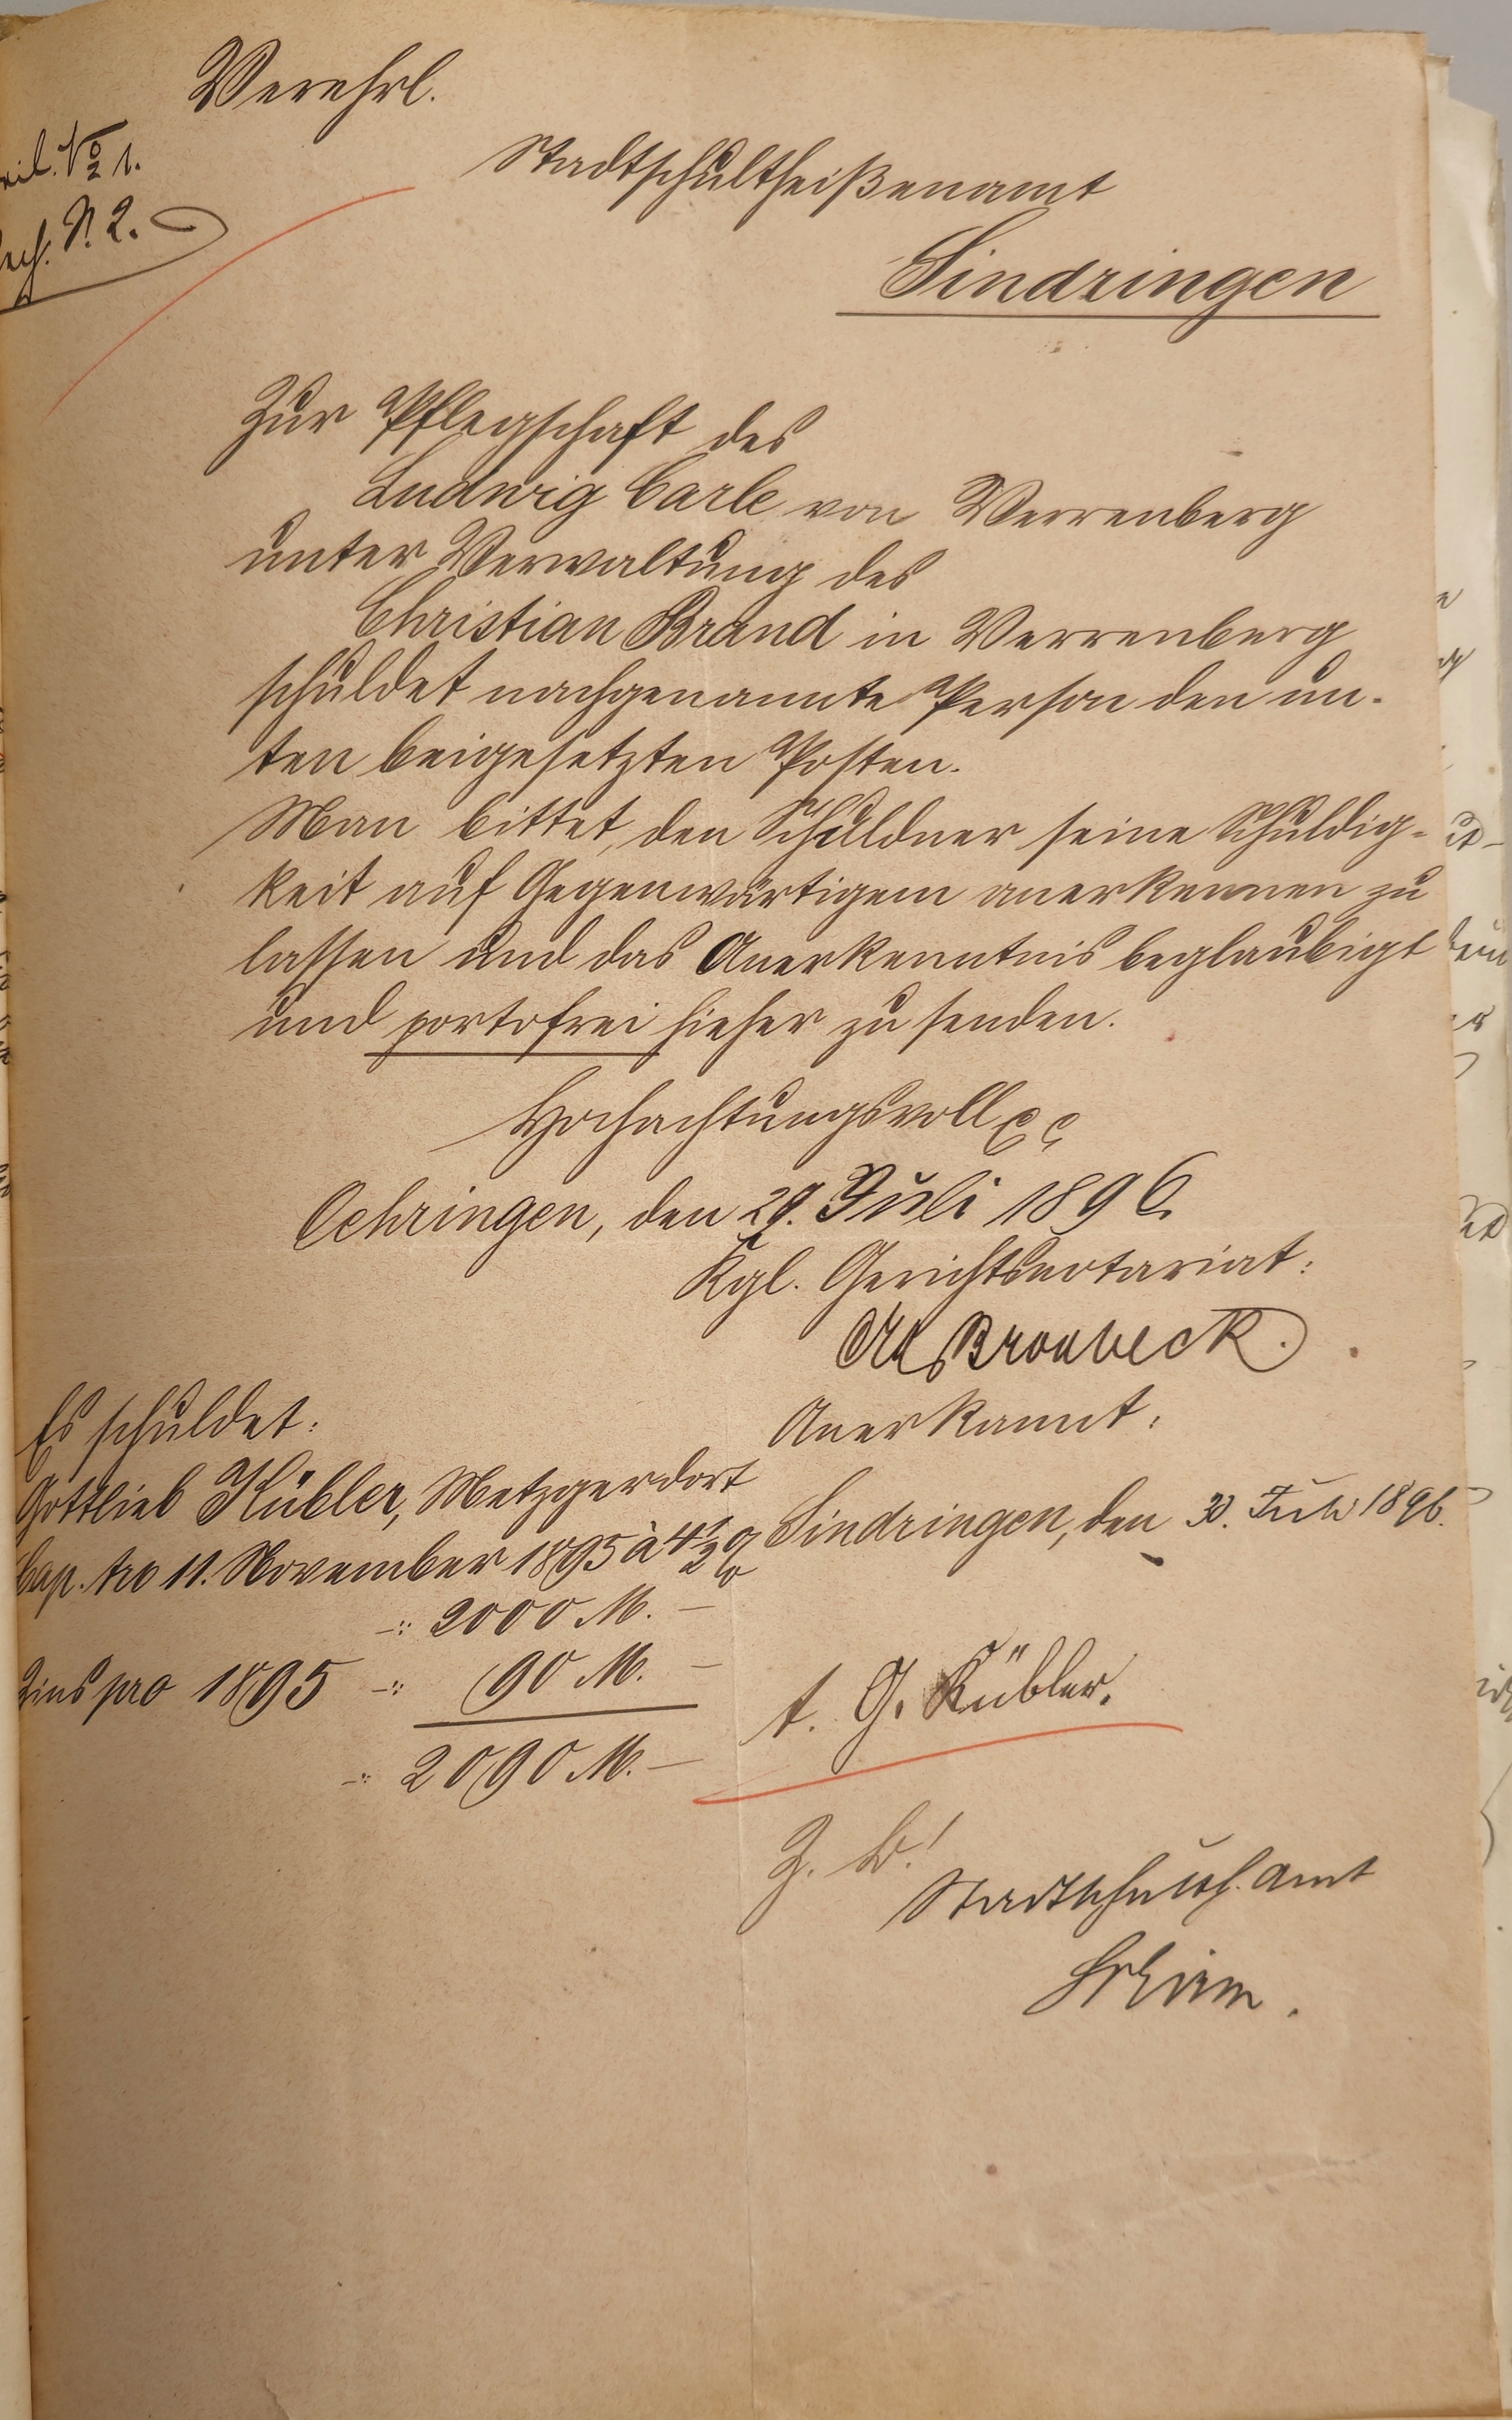 Verehrl.
№ 1.
N. 2.
Stadtschultheißenamt
Sindringen
Zur Pflegschaft des
Ludwig Carle von Verrenberg
unter Verwaltung des
Christian Brand in Verrenberg
schuldet nachgenannte Person den un-
ten beigesetzten Posten.
Man bittet, den Schuldner seine Schuldig-
keit auf Gegenwärtigem anerkennen zu
lassen und das Anerkenntnis beglaubigt
und portofrei hieher zu senden.
Hochachtungsvollst
Oehringen, den 29. Juli 1896.
Kgl. Gerichtsnotariat:
Bronbeck.
Es schuldet:
Gottlieb Kübler, Metzger dort
Cap. pro 11. November 1895 à 4½ %
-: 2000 M. —
Zins pro 1895 -: 90 M. —
-: 2090 M. —
Anerkannt:
Sindringen, den 30. Juli 1896.
t. G. Kübler.
Z. B.!
Stadtschulth. amt